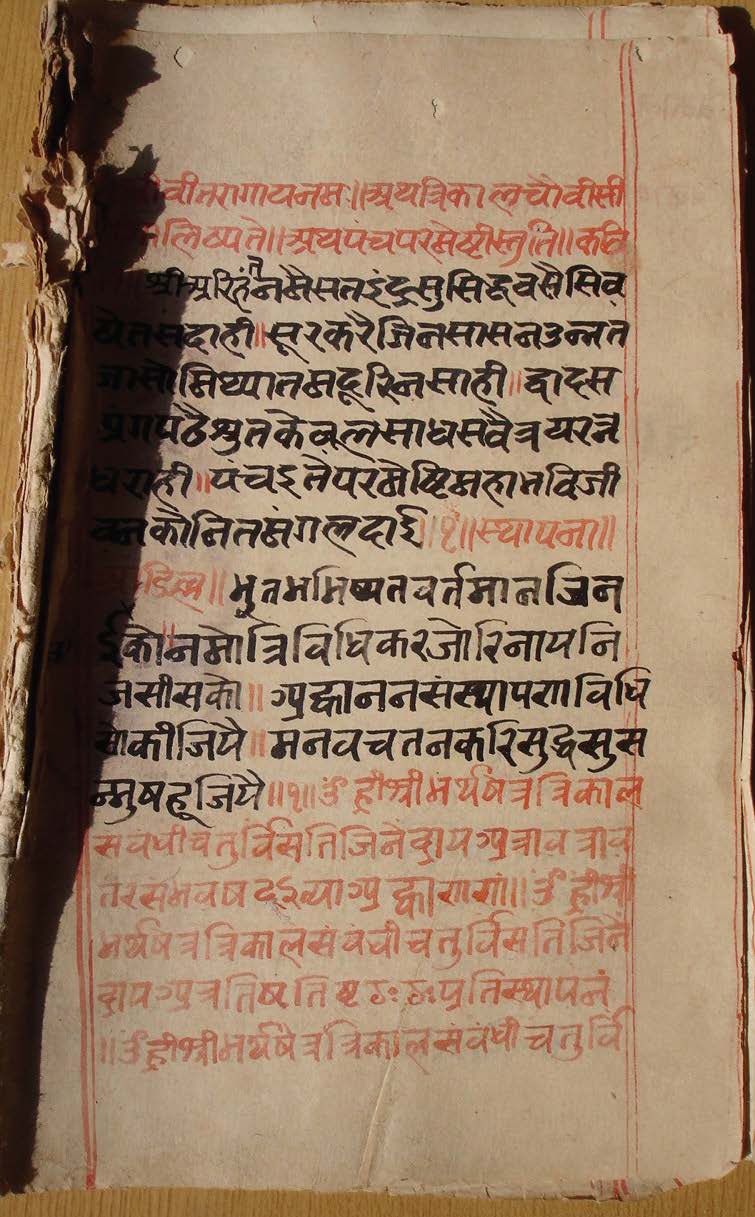 वीतरागायनमः॥अथत्रिकालचौवीसी
लिष्यते॥अथपंचपरमेष्टीस्तुति॥कवि
श्रीअरिहंतनमैसतइंद्रसुसिद्धवसैसिव
षेतसदाही॥सूरकरैजिनसासनउन्नत
जासोमिथ्यातमदूरिनसाही॥द्वादस
अंगपढैश्रुतकेवलसाधसवैत्रयरत्न
धराही॥पंचइतेपरमेष्टिमहाभविजी
वनकौनितमंगलदाई॥१॥स्थापना॥
अडिल्ल॥भुतभमिष्यतवर्तमानजिन
ईकोनमोत्रिविधिकरजोरिनायनि
जसीसको॥आह्वाननसंस्थापणाविधि
सोकीजियै॥मनवचतनकरिसुद्धसुस
न्मुषहूजियै॥१॥ॐह्रीश्रीभर्थषेत्रत्रिकाल
सवंधीचतुर्विसतिजिनेंद्रायअत्रावत्राव
तरसंभवषदइत्याआह्वाणणं॥ॐह्रीश्री
भर्थषेत्रत्रिकालसंवंधीचतुर्विसतिजिनें
द्रायअत्रतिष्टतिष्टठःठःप्रतिस्थापनं
॥ॐह्रीश्रीभर्थषेत्रत्रिकालसवंधीचतुर्वि